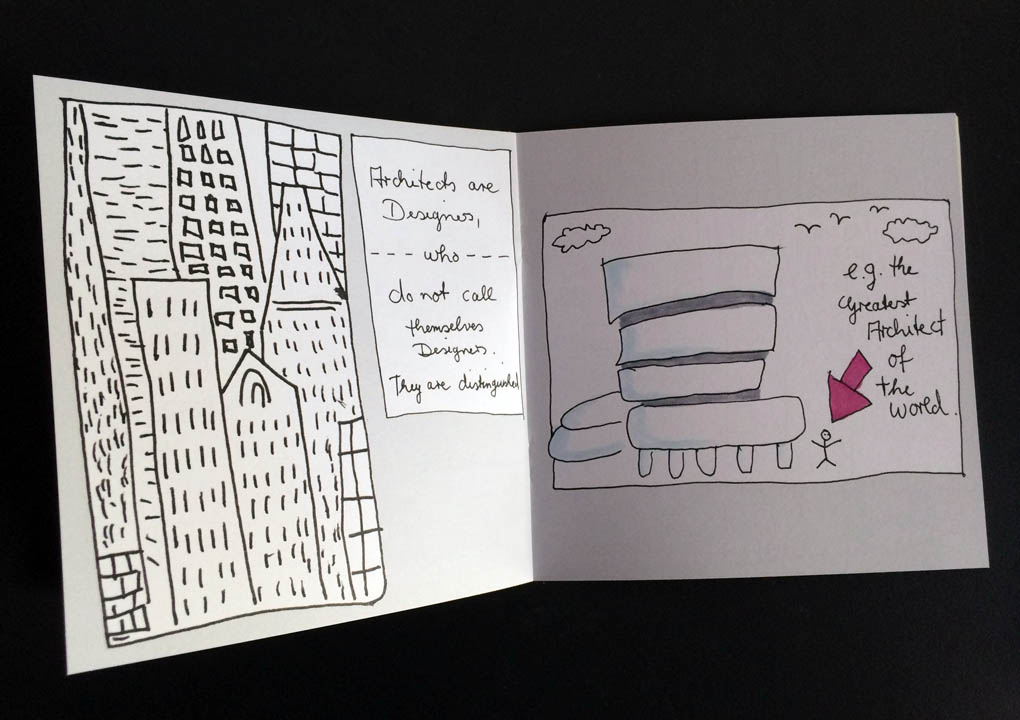 Architects are
Designers,
--- who ---
do not call
themselves
Designers.
They are distinguished
e.g. the
Greatest
Architect
of
the
world.